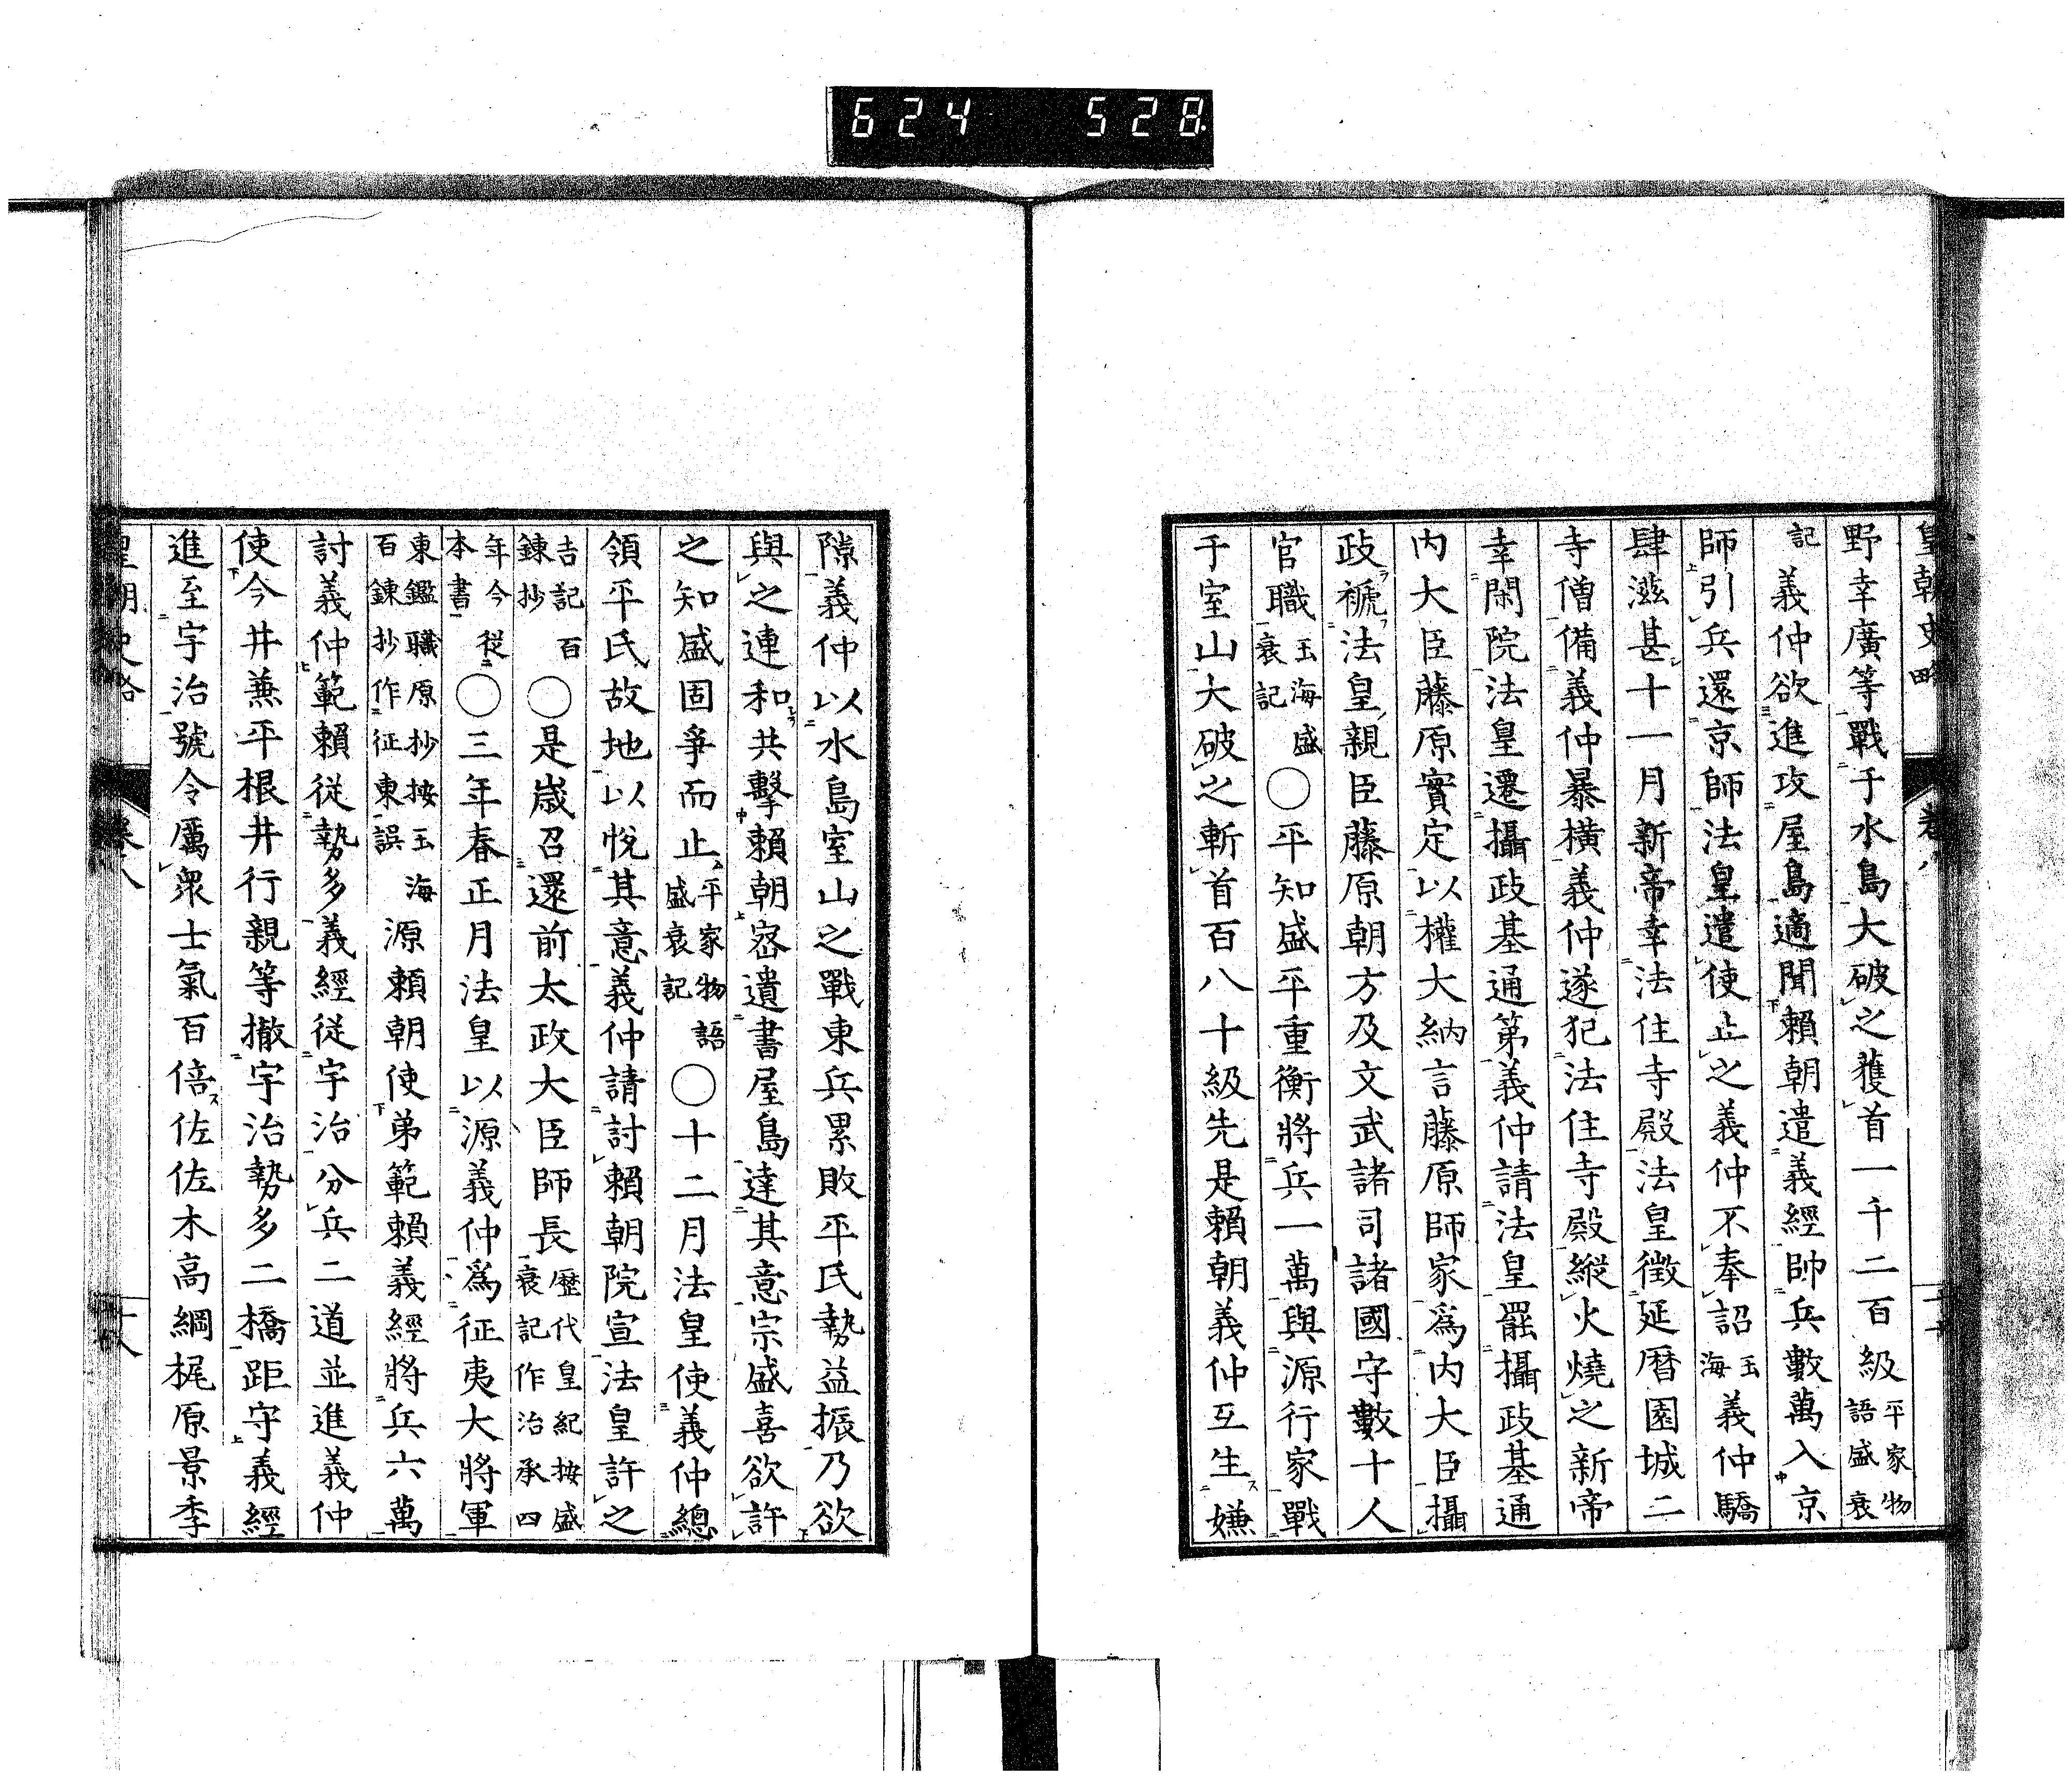 624 528
皇朝史略 卷八
野幸廣等戰于水島大破之獲首一千二百級平家物語盛衰
記義仲欲進攻屋島適聞賴朝遣義經帥兵數萬入京
師引兵還京師法皇遣使止之義仲不奉詔玉海義仲驕
肆滋甚十一月新帝幸法住寺殿法皇徵延曆園城二
寺僧備義仲暴橫義仲遂犯法住寺殿縱火燒之新帝
幸閑院法皇遷攝政基通第義仲請法皇罷攝政基通
内大臣藤原實定以權大納言藤原師家爲内大臣攝
政褫法皇親臣藤原朝方及文武諸司諸國守數十人
官職玉海盛衰記○平知盛平重衡將兵一萬與源行家戰
于室山大破之斬首百八十級先是賴朝義仲互生嫌
隙義仲以水島室山之戰東兵累敗平氏勢益振乃欲
與之連和共擊賴朝密遺書屋島達其意宗盛喜欲許
之知盛固爭而止平家物語盛衰記○十二月法皇使義仲總
領平氏故地以悅其意義仲請討賴朝院宣法皇許之
吉記百鍊抄○是歲召還前太政大臣師長歷代皇紀按盛衰記作治承四
年今從本書○三年春正月法皇以源義仲爲征夷大將軍
東鑑職原抄按玉海百鍊抄作征東誤源賴朝使弟範賴義經將兵六萬
討義仲範賴從勢多義經從宇治分兵二道並進義仲
使今井兼平根井行親等撤宇治勢多二橋距守義經
進至宇治號令厲衆士氣百倍佐佐木高綱梶原景季
皇朝史略 卷八